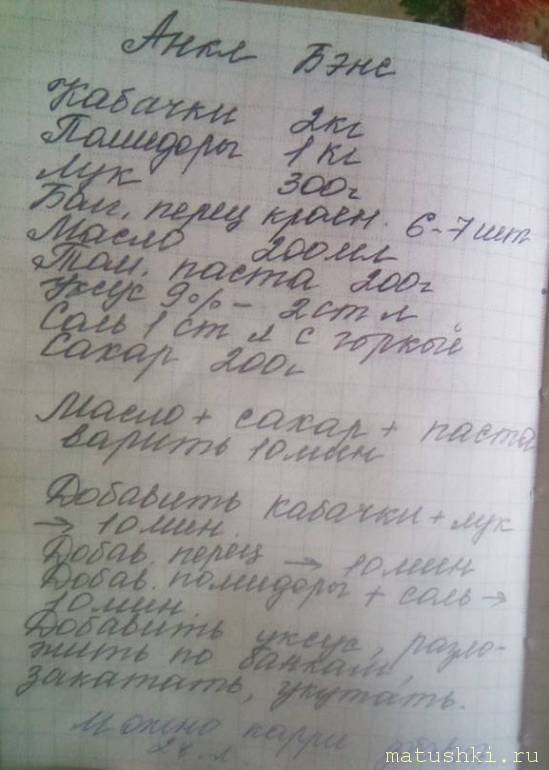 Анкл Бэнс
Кабачки 2кг
Помидоры 1кг
Лук 300г
Бол. перец красн. 6-7шт
Масло 200мл
Том. паста 200г
Уксус 9% - 2ст л
Соль 1 ст л с горкой
Сахар 200г
Масло + сахар + паста
варить 10мин
Добавить кабачки + лук
→ 10мин.
Добав. перец → 10мин
Добав. помидоры + соль →
10мин.
Добавить уксус, разло-
жить по банкам,
закатать, укутать.
Можно карри
2ч л
matushki.ru